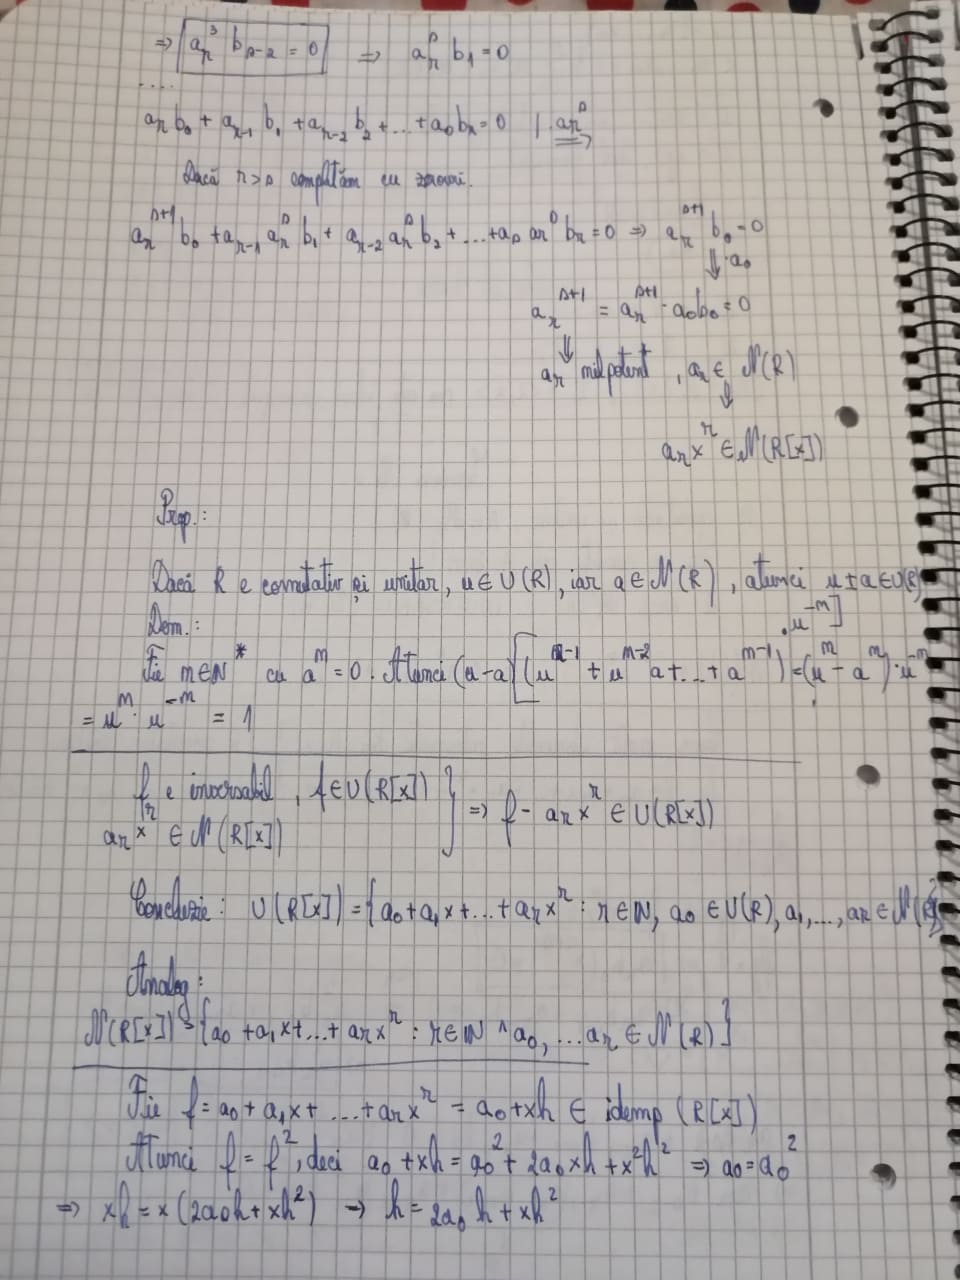 ⇒ a_r^3 b_{s-2} = 0 ⇒ a_r^s b_1 = 0
....
a_r b_0 + a_{r-1} b_1 + a_{r-2} b_2 + ... + a_0 b_r = 0 | · a_r^s ⇒
Dacă r > s completăm cu zerouri.
a_r^{s+1} b_0 + a_{r-1} a_r^s b_1 + a_{r-2} a_r^s b_2 + ... + a_0 a_r^s b_r = 0 ⇒ a_r^{s+1} b_0 = 0
⇓ · a_0
a_r^{s+1} = a_r^{s+1} · a_0 b_0 = 0
⇓
a_r nilpotent, a_r ∈ N(R)
⇓
a_r x^r ∈ N(R[x])
Prop.:
Dacă R e comutativ și unitar, u ∈ U(R), iar a ∈ N(R), atunci u ± a ∈ U(R)
Dem.:
Fie m ∈ N* cu a^m = 0. Atunci (u-a) [(u^{m-1} + u^{m-2} a + ... + a^{m-1}) · u^{-m}] = (u^m - a^m) · u^{-m}
= u^m · u^{-m} = 1
f e inversabil, f ∈ U(R[x])
a_r x^r ∈ N(R[x]) } ⇒ f - a_r x^r ∈ U(R[x])
Concluzie: U(R[x]) = {a_0 + a_1 x + ... + a_r x^r : r ∈ N, a_0 ∈ U(R), a_1, ..., a_r ∈ N(R)}
Analog:
N(R[x]) = {a_0 + a_1 x + ... + a_r x^r : r ∈ N ∧ a_0, ... a_r ∈ N(R)}
Fie f = a_0 + a_1 x + ... + a_r x^r = a_0 + xh ∈ idemp(R[x])
Atunci f = f^2, deci a_0 + xh = a_0^2 + 2a_0 xh + x^2 h^2 ⇒ a_0 = a_0^2
⇒ xh = x(2a_0 h + xh^2) ⇒ h = 2a_0 h + xh^2